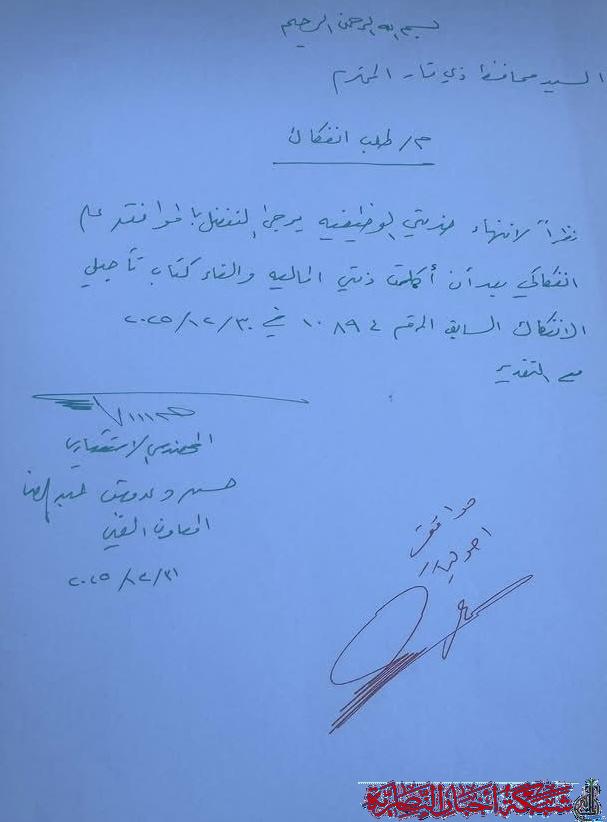 بسم الله الرحمن الرحيم
السيد محافظ ذي قار المحترم
م/ طلب انفكاك
نظراً لانتهاء خدمتي الوظيفية يرجى التفضل بالموافقة على
انفكاكي بعد أن أكملت ذمتي المالية والغاء كتاب تأجيلي
الانفكاك السابق المرقم ١٠٨٩ في ٢٠٢٥/١٢/٣٠
مع التقدير
المهندس الاستشاري
حسين
المعاون الفني
٢٠٢٥/١٢/٣١
موافق
اصولياً
شبكة اخبار الناصرية